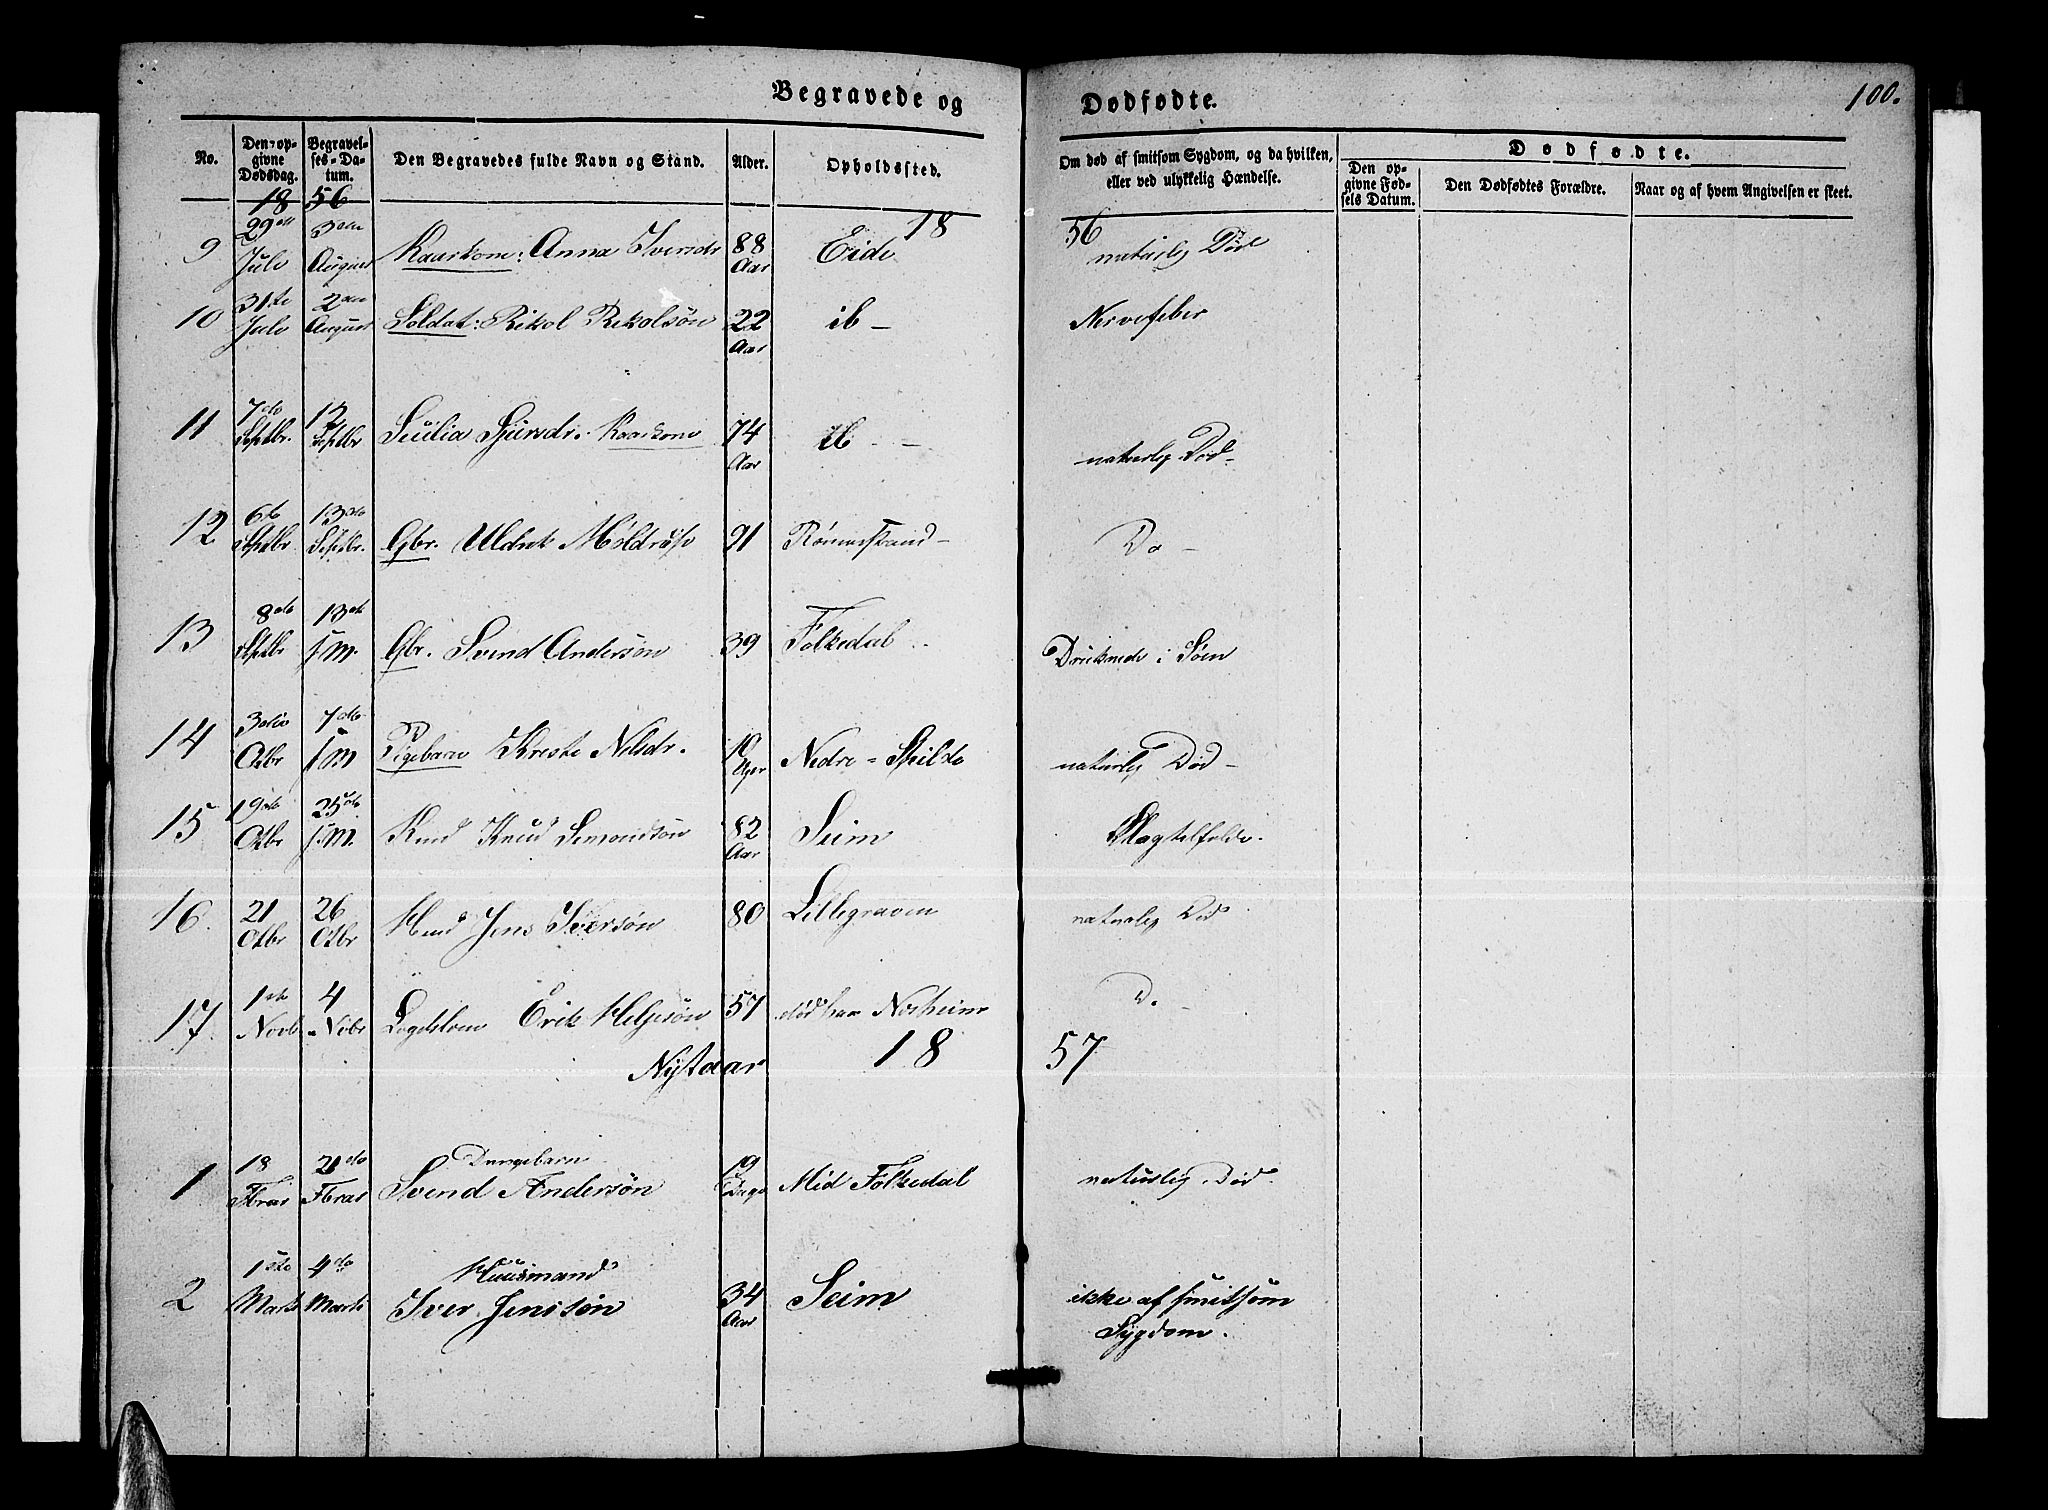 Begravede og
Dødfødte.
100.
No.
Den opgivne Dødsdag.
Begravelses-Datum.
Den Begravedes fulde Navn og Stand.
Alder.
Opholdssted.
Om død af smitsom Sygdom, og da hvilken, eller ved ulykkelig Hændelse.
Dødfødte.
Den opgivne Fødsels Datum.
Den Dødfødtes Forældre.
Naar og af hvem Angivelsen er skeet.
18 56
18 56
9 29de Juli 3die August Kaarkone: Anna Iversdr 88 Aar Eide naturlig Død
10 31te Juli 2den August Soldat: Rikol Rikolsøn 22 Aar ib - Nervefeber
11 7de Septbr. 12 Septbr Sisilia Sjursdr. Kaarkone 74 Aar ib - naturlig Død -
12 6te Septbr 13de Septbr. Gbr. 91 Do -
13 8de Septbr 13de s.M. Gbr. Svend Andersøn 39 Folkedal Druknede i Søen
14 3die Octbr 7de s.M Pigebarn Kreste Nilsdr. 10 Uger Nedre-Skilde naturlig Død -
15 19de Octbr 25de s.M. Knud Simondsøn 82 Aar Seim
16. 21 Octbr 26 Octbr Jens Iversøn 80 Lillegraven naturlig Død
17. 1ste Novb 4 Nobr Logdslem Erik Helgesøn 57 Norheim D.
Nytaar 18 57
1 18 Fbrar 21de Fbrar Drengebarn Svend Andersøn 19 Dage Mid Folkedal naturlig Død.
2 1ste Marts 4de Marts Huusmand Iver Jenssøn 34 Aar Seim ikke af smitsom Sygdom.